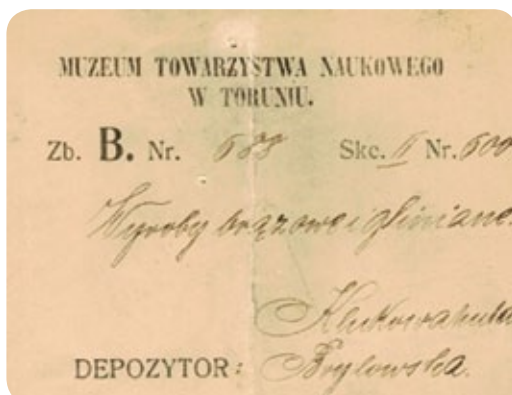 MUZEUM TOWARZYSTWA NAUKOWEGO
W TORUNIU.
Zb. B. Nr. 688 Skc. II Nr. 600
Wyroby brązowe i gliniane.
Klukowahuta
DEPOZYTOR: Brylowska.